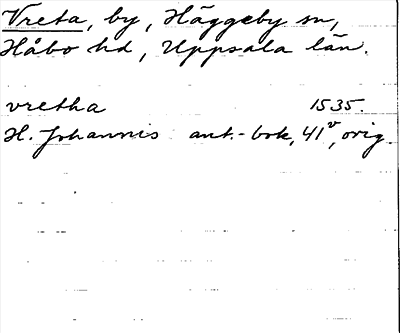 Vreta, by, Häggeby sn,
Håbo hd, Uppsala län.
vretha 1535.
H. Johannis ant.-bok, 41v, orig.